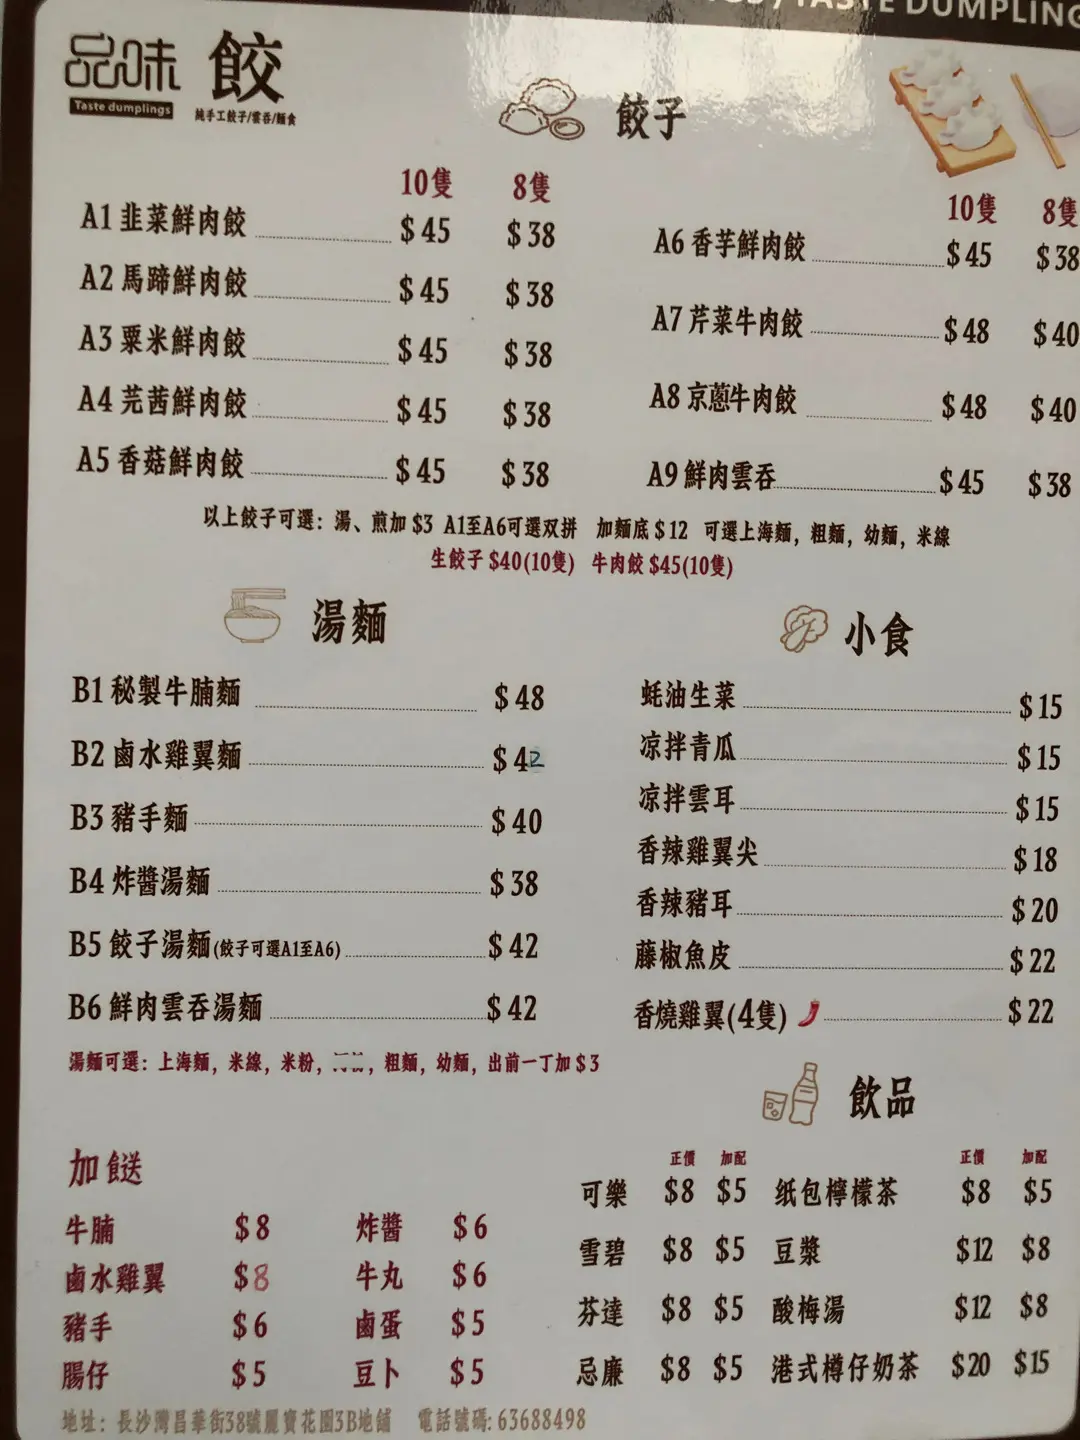 TASTE DUMPLING
品味 餃
Taste dumplings
純手工餃子/雲吞/麵食
餃子
10隻 8隻
A1 韭菜鮮肉餃 $45 $38
A2 馬蹄鮮肉餃 $45 $38
A3 粟米鮮肉餃 $45 $38
A4 芫茜鮮肉餃 $45 $38
A5 香菇鮮肉餃 $45 $38
10隻 8隻
A6 香芋鮮肉餃 $45 $38
A7 芹菜牛肉餃 $48 $40
A8 京蔥牛肉餃 $48 $40
A9 鮮肉雲吞 $45 $38
以上餃子可選: 湯、煎加 $3 A1至A6可選双拼 加麵底 $12 可選上海麵, 粗麵, 幼麵, 米線
生餃子 $40(10隻) 牛肉餃 $45(10隻)
湯麵
B1 秘製牛腩麵 $48
B2 鹵水雞翼麵 $42
B3 豬手麵 $40
B4 炸醬湯麵 $38
B5 餃子湯麵 (餃子可選A1至A6) $42
B6 鮮肉雲吞湯麵 $42
湯麵可選: 上海麵, 米線, 米粉, , 粗麵, 幼麵, 出前一丁加 $3
小食
蚝油生菜 $15
凉拌青瓜 $15
凉拌雲耳 $15
香辣雞翼尖 $18
香辣豬耳 $20
藤椒魚皮 $22
香燒雞翼(4隻) $22
加餸
牛腩 $8 炸醬 $6
鹵水雞翼 $8 牛丸 $6
豬手 $6 鹵蛋 $5
腸仔 $5 豆卜 $5
飲品
正價 加配 正價 加配
可樂 $8 $5 纸包檸檬茶 $8 $5
雪碧 $8 $5 豆漿 $12 $8
芬達 $8 $5 酸梅湯 $12 $8
忌廉 $8 $5 港式樽仔奶茶 $20 $15
地址: 長沙灣昌華街38號麗寶花園3B地舖 電話號碼: 63688498